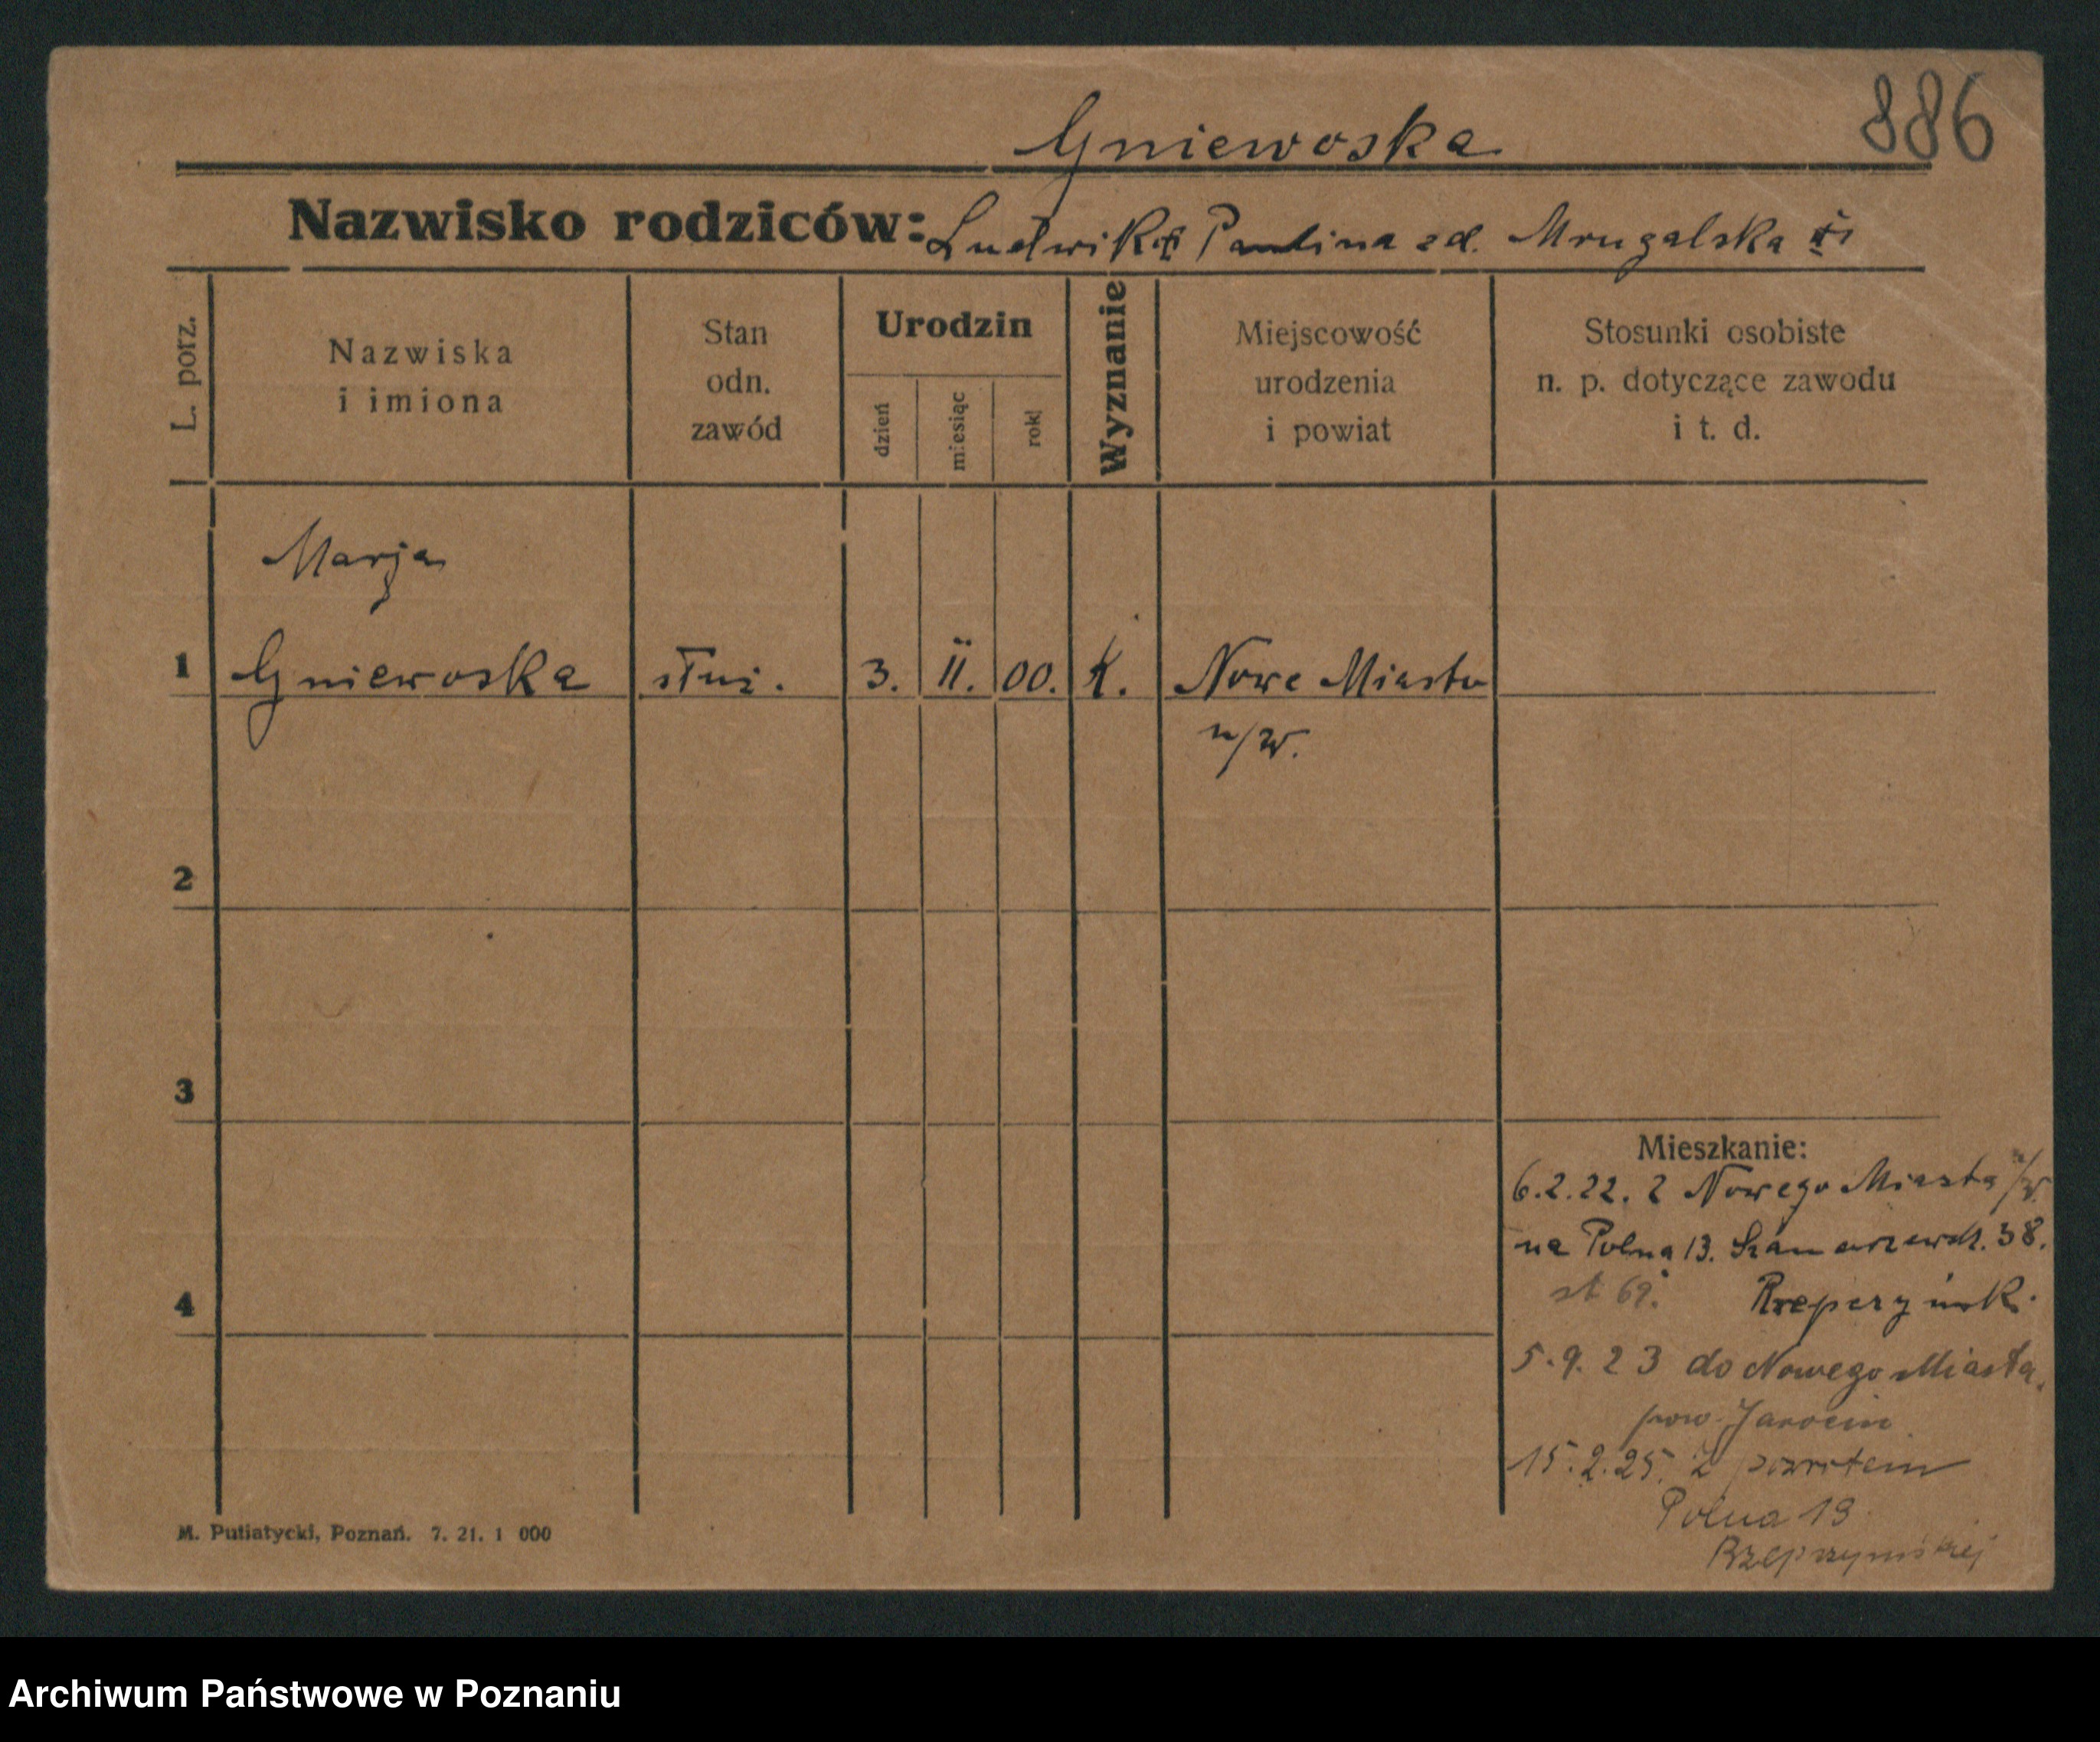 886
Gniewoska
Nazwisko rodziców: Ludwik Paulina zd. Mrugalska
L. porz.
Nazwiska
i imiona
Stan
odn.
zawód
Urodzin
dzień
miesiąc
rok
Wyznanie
Miejscowość
urodzenia
i powiat
Stosunki osobiste
n. p. dotyczące zawodu
i t. d.
Marja
1 Gniewoska służ. 3. II. 00. K. Nowe Miasto
n/W.
2
3
4
Mieszkanie:
6.2.22. z Nowego Miasta n/W.
na Polną 13. 38.
5.9.23 do Nowego Miasta
pow. Jarocin
15.2.25. z powrotem
Polna 13
M. Putiatycki, Poznań. 7. 21. 1 000
Archiwum Państwowe w Poznaniu